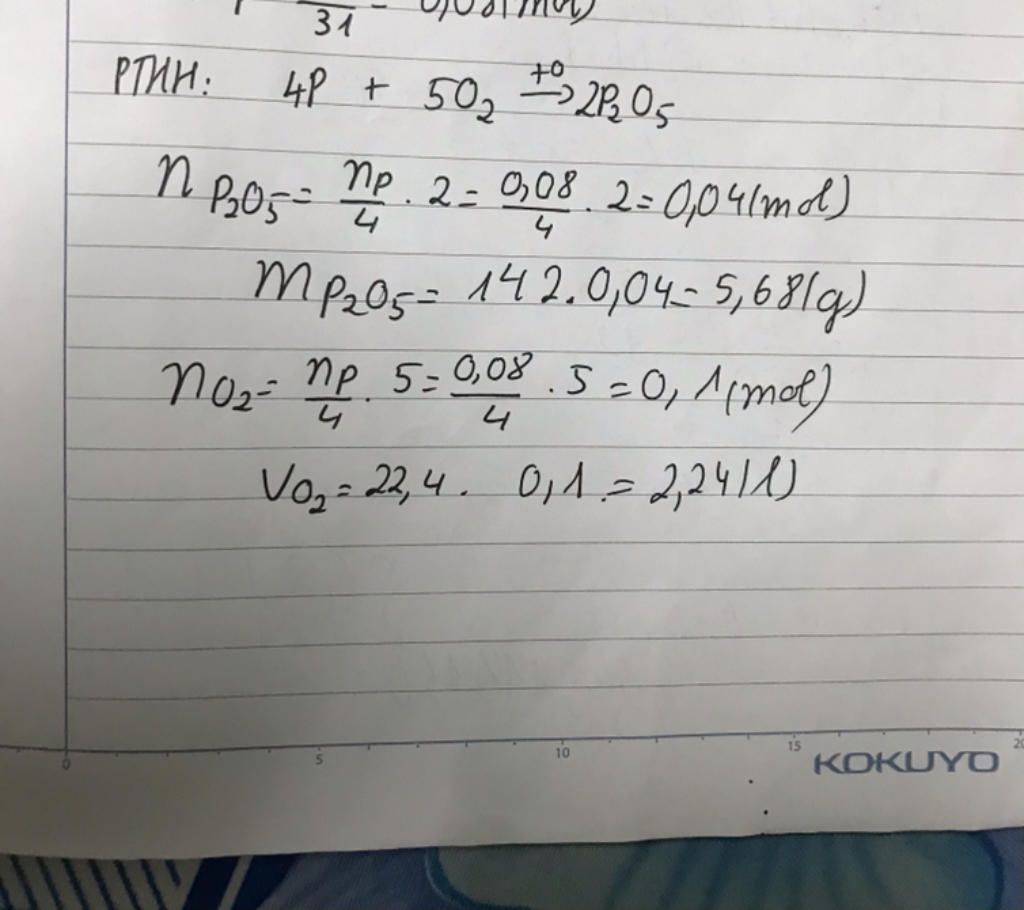 31 = 0,08(mol)
PTHH: 4P + 5O₂ →(t°) 2P₂O₅
n P₂O₅ = nP/4 . 2 = 0,08/4 . 2 = 0,04(mol)
m P₂O₅ = 142.0,04 = 5,68(g)
nO₂ = nP/4 . 5 = 0,08/4 . 5 = 0,1(mol)
VO₂ = 22,4 . 0,1 = 2,24(l)
0 5 10 15 20
KOKUYO